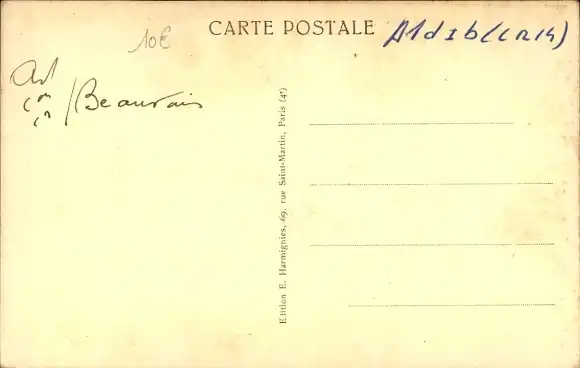 10€
CARTE POSTALE
Beauvais
Edition E. Harmignies, 69, rue Saint-Martin, Paris (4e)